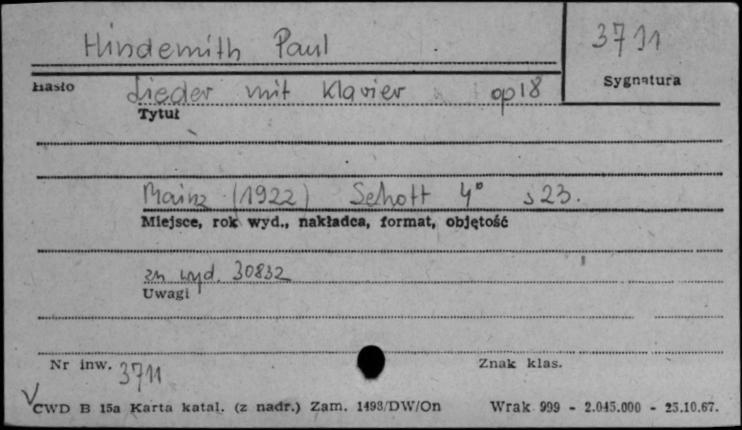 Hindemith Paul
3711
Hasło
Sygnatura
Lieder mit Klavier op 18
Tytuł
Mainz (1922) Schott 4° s 23.
Miejsce, rok wyd., nakładca, format, objętość
zn wyd. 30832
Uwagi
Nr inw. 3711
Znak klas.
CWD B 15a Karta katal. (z nadr.) Zam. 1493/DW/On Wrak 999 - 2.045.000 - 25.10.67.